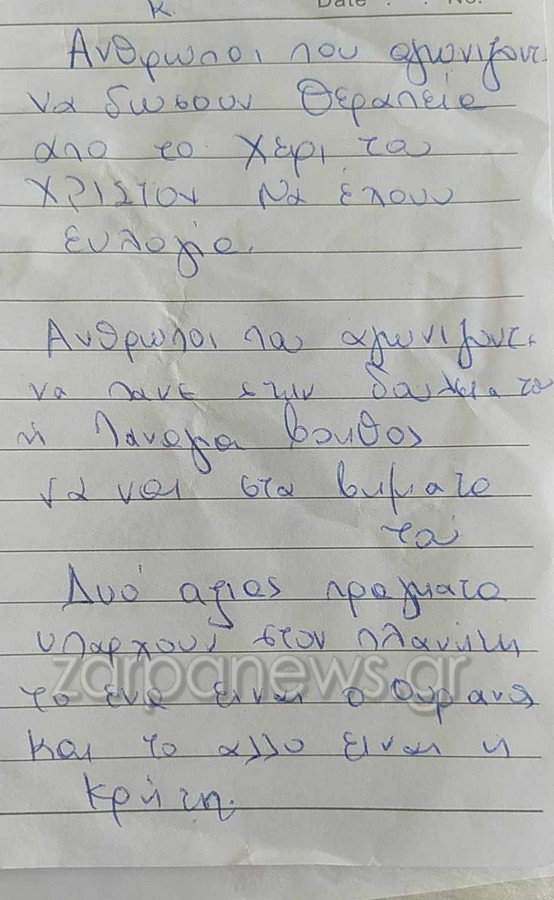 κ.
Date . . No.
Ανθρωποι που αγωνιζοντ
να δωσουν θεραπεια
απο το χερι του
ΧΡΙΣΤΟΥ Να εχουν
ευλογια.
Ανθρωποι που αγωνιζοντ.
να πανε στην δουλεια το
η Παναγια βοηθος
να ναι στα βηματα
του
Δυό αγιος πραγματα
υπαρχουν στον πλανητη
zarpanews.gr
το ενα ειναι ο Ουρανος
και το αλλο ειναι η
Κρήτη.